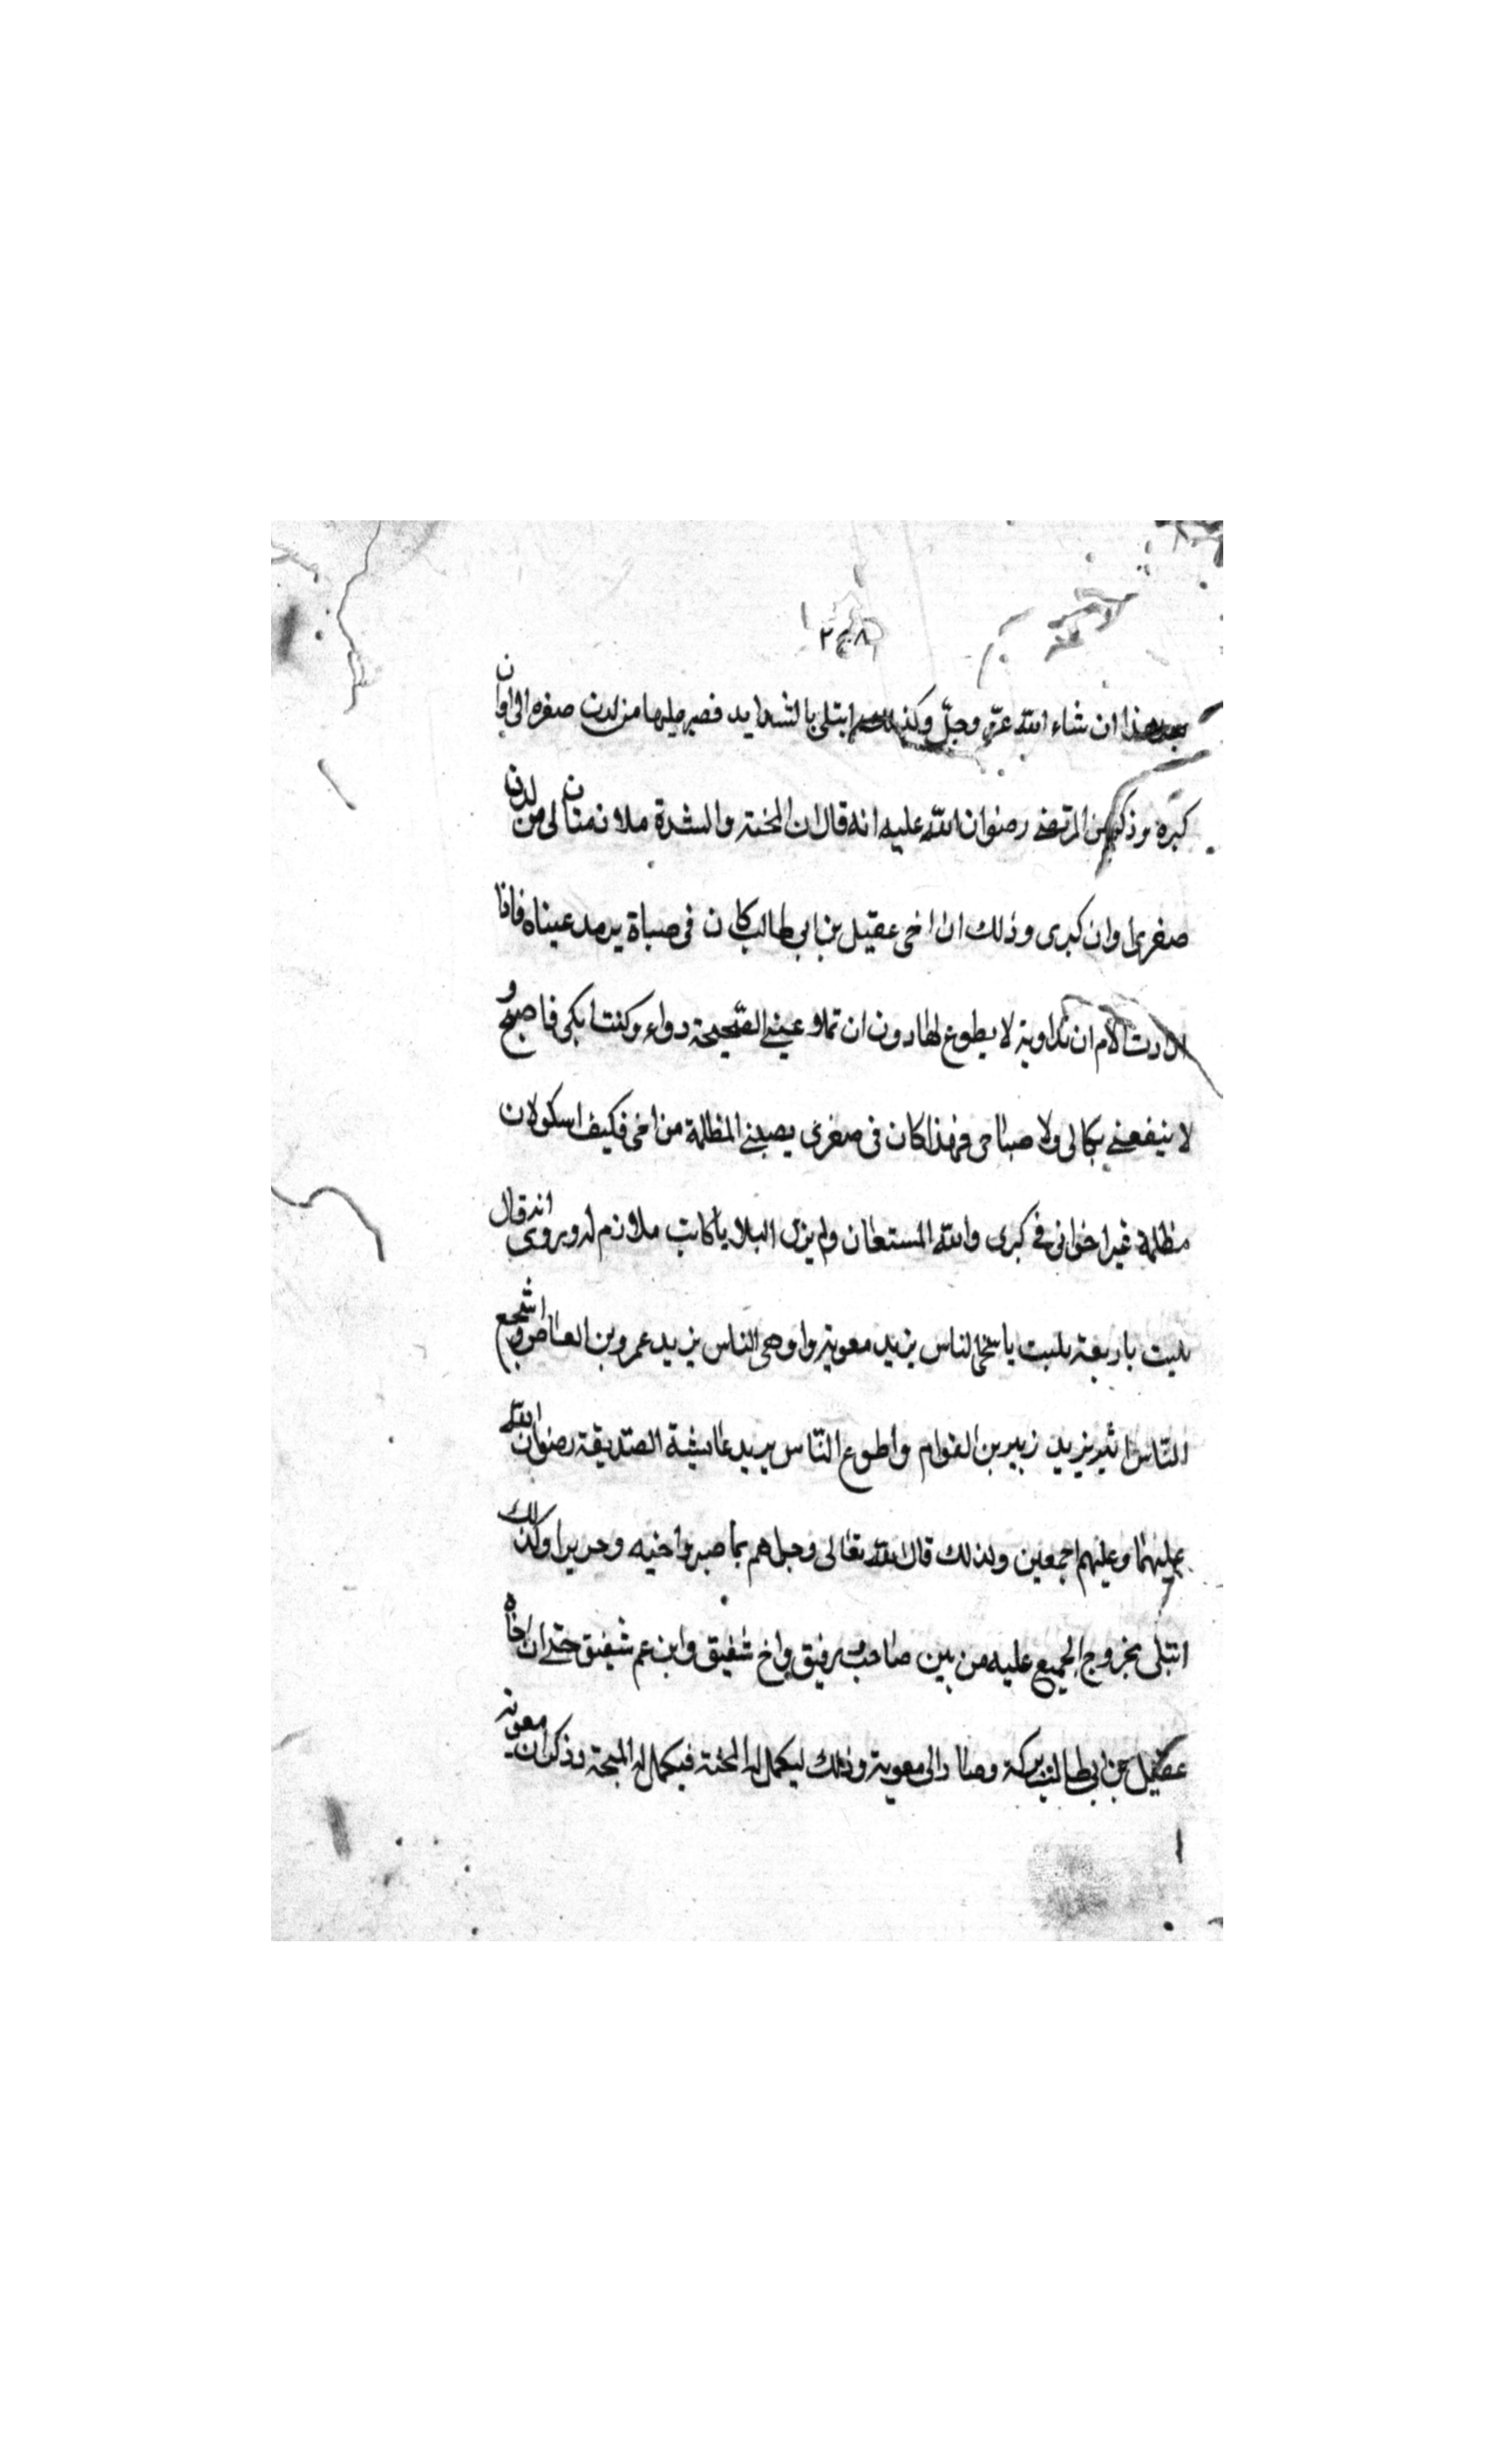 ٢٠٨
بعد هذا ان شاء الله عزّ وجلّ وكذلك ابتلى بالشدايد فصبر عليها من لدن صغره الى اوان
كبره وذكر عن المرتضى رضوان الله عليه انه قال ان المحنة والشدة ملازمتان لى من لدن
صغرى اوان كبرى وذلك ان اخى عقيل بن ابى طالب كان فى صباة يرمد عيناه فاذا
ارادت الام ان تداوية لا يطوع لها دون ان تملاو عينى الصحيحة دواء وكنت ابكى فاصيح و
لا ينفعنى بكالى ولا صباحى فهذا كان فى صغرى يصيبنى المظلمة من اخى فكيف اسكو لان
مظلمة غير اخوانى فى كبرى والله المستعان ولم يزل البلايا كانت ملازم له ويروى انه قال
بليت باربعة بليت باسخى الناس يزيد معوية وادهى الناس يزيد عمرو بن العاص وباشجع
النّاس اثير يزيد زبير بن العوام واطوع النّاس يريد عايشة الصديقة رضوان الله
عليهما وعليهم اجمعين ولذلك قال الله تعالى وجزاهم بما صبروا جنة وحريرا وكذلك
ابتلى بخروج الجميع عليه من بين صاحب رفيق واخ شفيق وابن عم شفيق حتى ان اخاه
عقيل بن ابى طالب تركه وصار الى معوية وذلك ليكمل له المحنة فيكمل له المحبة وذكر ان معوية